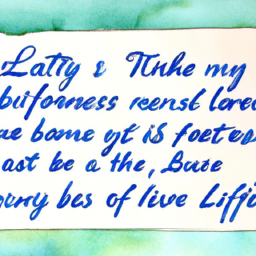 Latly & Tnhe my
buforness reenst lored
ae bome yt is foeteve
ast be a the, Bute
gorry bes of live Liffje